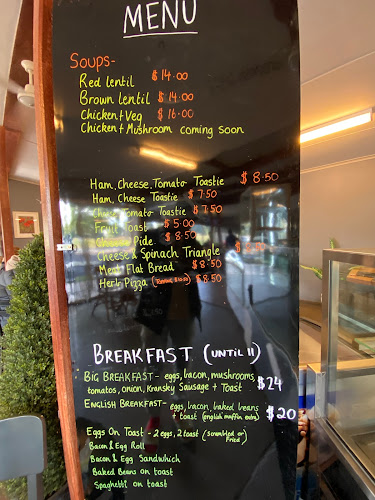 MENU
Soups-
Red lentil $14.00
Brown lentil $14.00
Chicken + Veg $16.00
Chicken + Mushroom coming soon
Ham, Cheese, Tomato Toastie $8.50
Ham, Cheese Toastie $7.50
Cheese Tomato Toastie $7.50
Fruit Toast $5.00
Pide $8.50
Cheese & Spinach Triangle
Meat Flat Bread $8.50
Herb Pizza $8.50
BREAKFAST (UNTIL 11)
BIG BREAKFAST - eggs, bacon, mushrooms
tomatos, onion, Kransky Sausage + Toast $24
ENGLISH BREAKFAST - eggs, bacon, baked beans
+ toast (english muffin extra) $20
Eggs On Toast - 2 eggs, 2 toast (scrambled or Fried)
Bacon & Egg Roll
Bacon & Egg Sandwhich
Baked Beans on toast
Spaghetti on toast